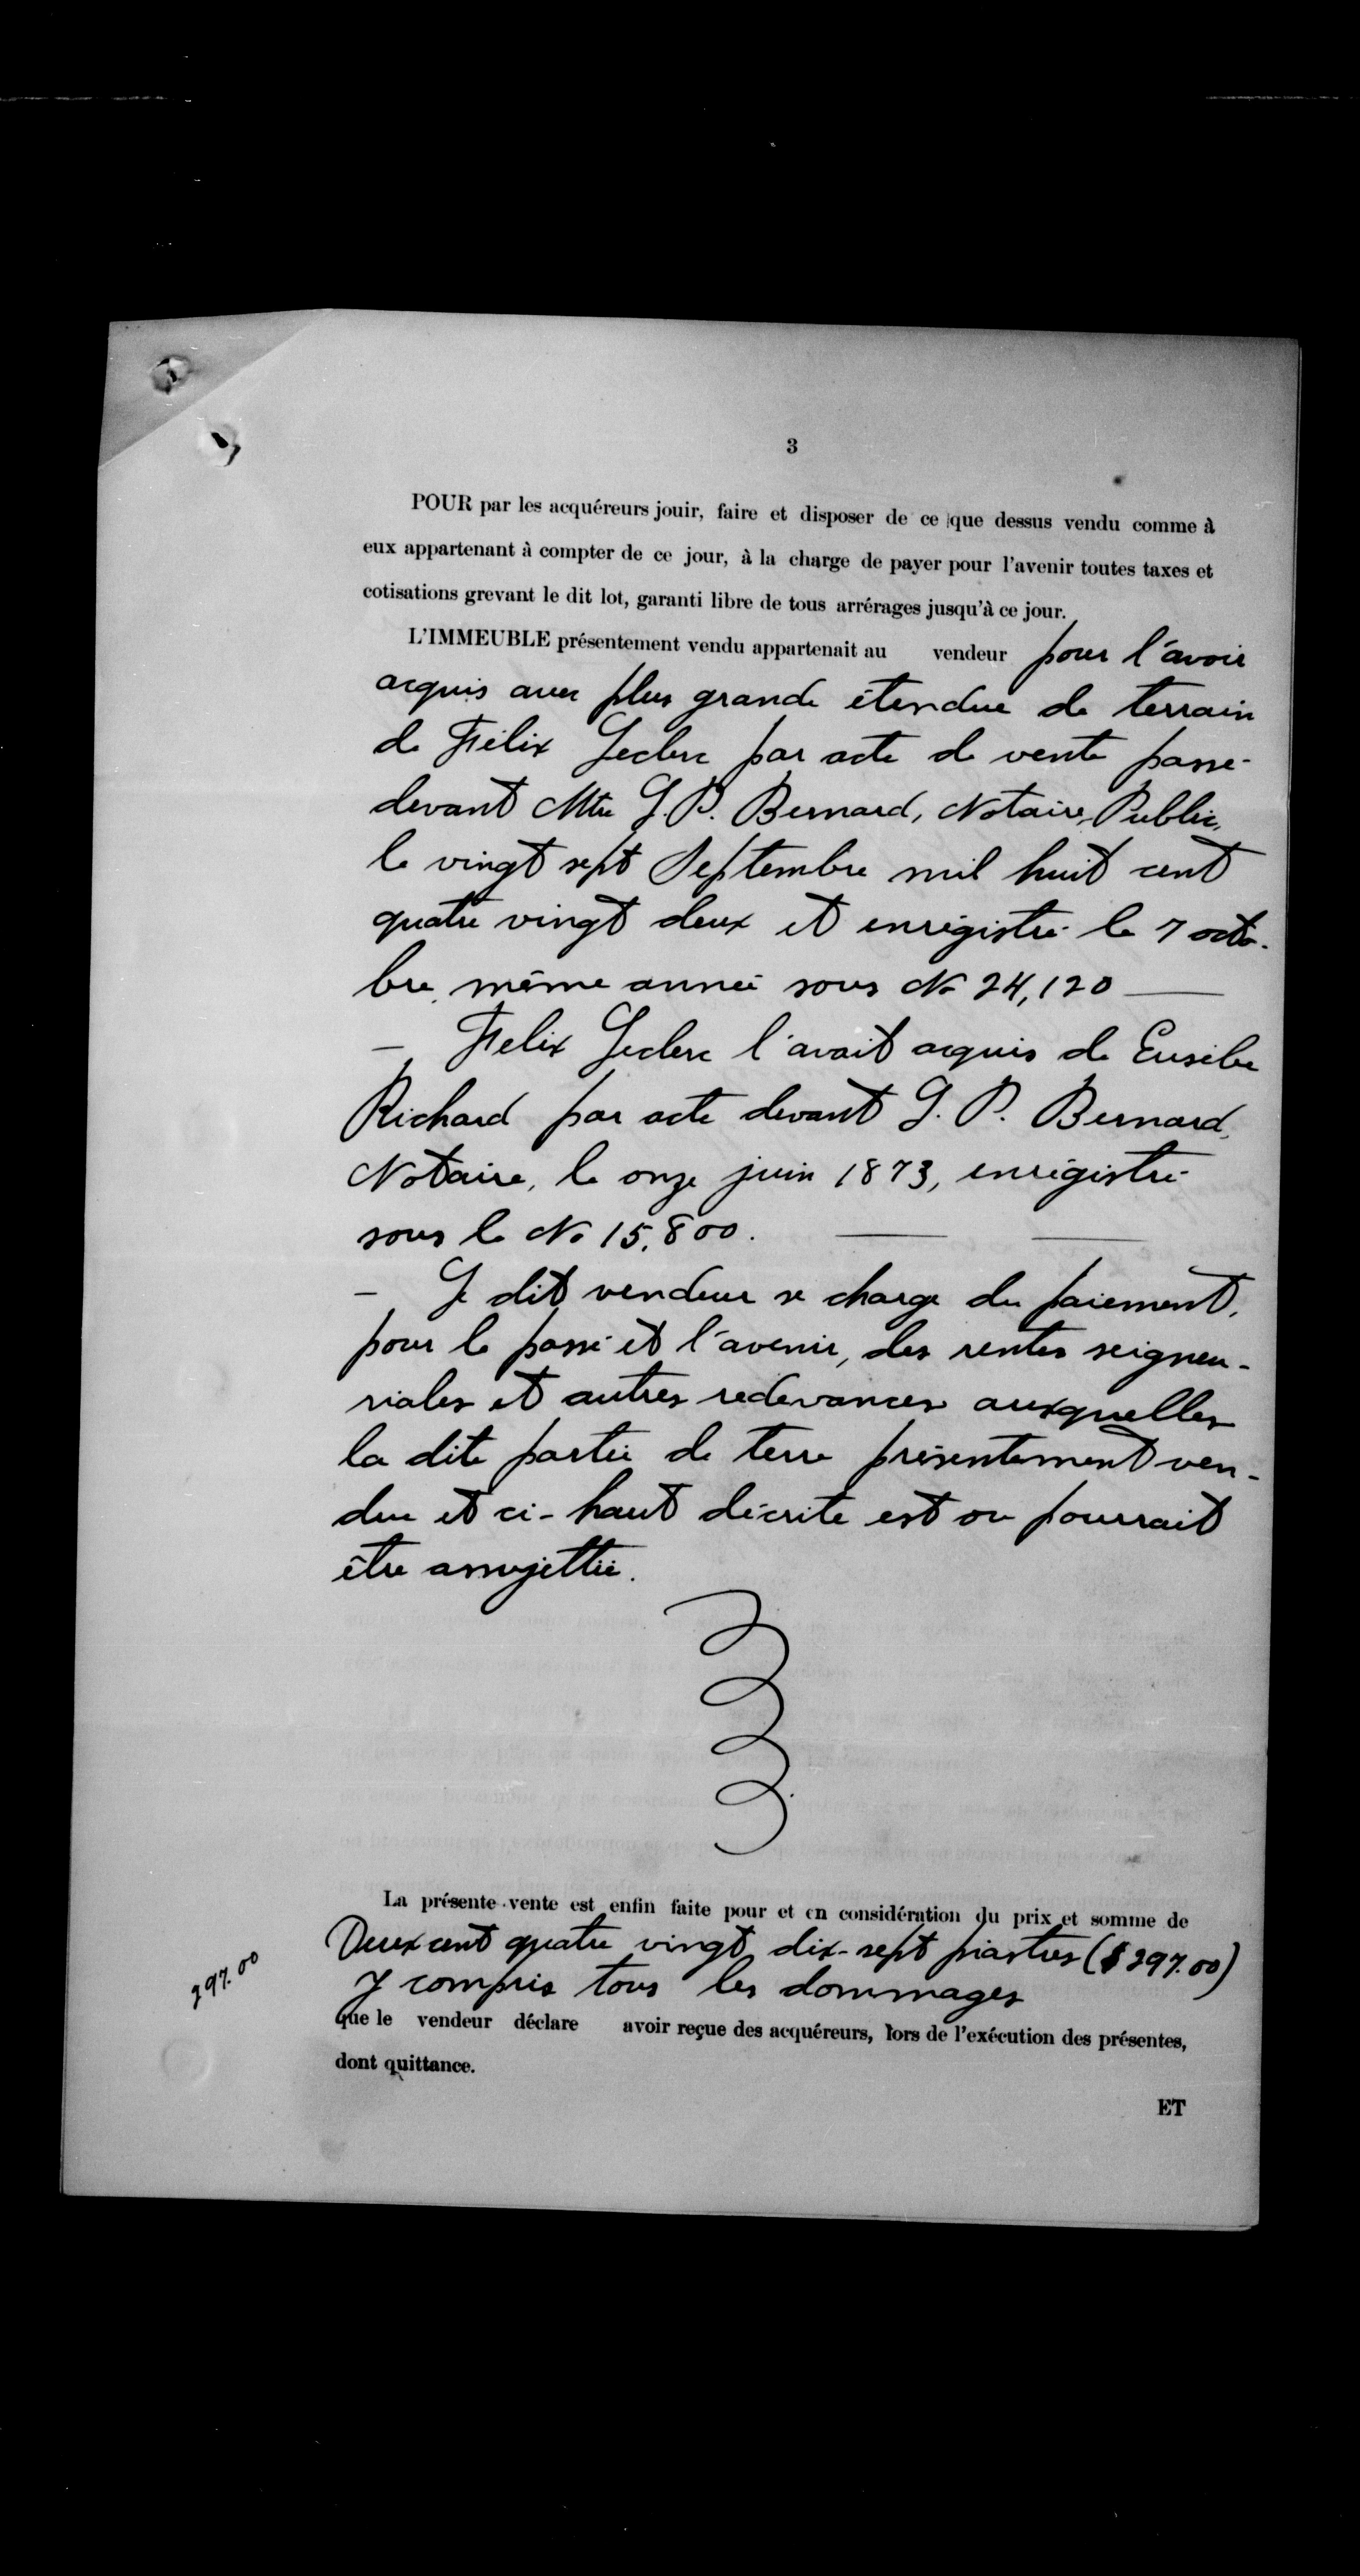 3
POUR par les acquéreurs jouir, faire et disposer de ce que dessus vendu comme à
eux appartenant à compter de ce jour, à la charge de payer pour l'avenir toutes taxes et
cotisations grevant le dit lot, garanti libre de tous arrérages jusqu'à ce jour.
L'IMMEUBLE présentement vendu appartenait au vendeur pour l'avoir
acquis avec plus grande étendue de terrain
de Félix Leclerc par acte de vente passé
devant Mtre L. P. Bernard, Notaire Public,
le vingt sept Septembre mil huit cent
quatre vingt deux et enrégistré le 7 octo-
bre même année sous No 24,120
— Felix Leclerc l'avait acquis de Eusèbe
Richard par acte devant L. P. Bernard,
Notaire, le onze juin 1873, enrégistré
sous le No 15,800.
— Le dit vendeur se charge du paiement,
pour le passé et l'avenir, des rentes seigneu-
riales et autres redevances auxquelles
la dite partie de terre présentement ven-
due et ci-haut décrite est ou pourrait
être assujettie.
La présente vente est enfin faite pour et en considération du prix et somme de
Deux cent quatre vingt dix-sept piastres ($297.00)
297.00
y compris tous les dommages
que le vendeur déclare avoir reçue des acquéreurs, lors de l'exécution des présentes,
dont quittance.
ET